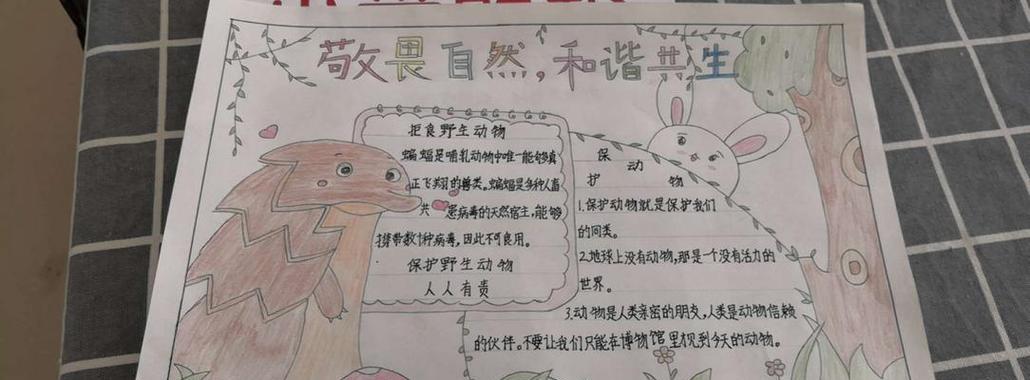 敬畏自然,和谐共生
拒食野生动物
蝙蝠是哺乳动物中唯一能够真
正飞翔的兽类。蝙蝠是多种人畜
共患病毒的天然宿主,能够
携带数十种病毒,因此不可食用。
保护野生动物
人人有责
保护动物
1.保护动物就是保护我们
的同类。
2.地球上没有动物,那是一个没有活力的
世界。
3.动物是人类亲密的朋友,人类是动物信赖
的伙伴。不要让我们只能在博物馆里见到今天的动物。